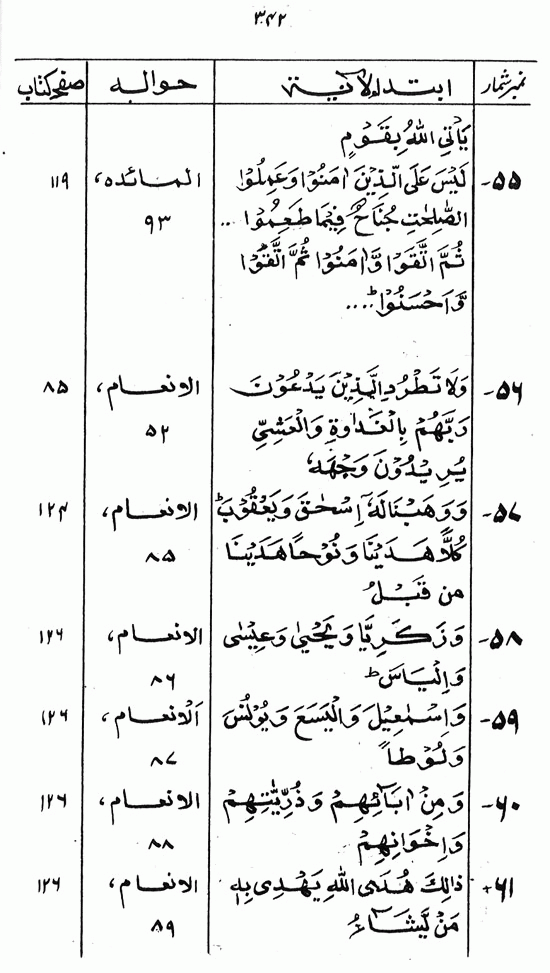 ۳۴۲
نمبر شمار ابتداء الآیۃ حوالہ صفحہ کتاب
یَاْتِی اللّٰہُ بِقَوْمٍ
۵۵- لَیْسَ عَلَی الَّذِیْنَ اٰمَنُوْا وَعَمِلُوا المائدہ، ۱۱۹
الصّٰلِحٰتِ جُنَاحٌ فِیْمَا طَعِمُوْا .. ۹۳
ثُمَّ اتَّقَوْا وَّاٰمَنُوْا ثُمَّ اتَّقَوْا
وَّاَحْسَنُوْا ؕ....
۵۶- وَلَا تَطْرُدِ الَّذِیْنَ یَدْعُوْنَ الانعام، ۸۵
رَبَّھُمْ بِالْغَدٰوۃِ وَالْعَشِیِّ ۵۲
یُرِیْدُوْنَ وَجْھَہٗ
۵۷- وَوَھَبْنَا لَہٗۤ اِسْحٰقَ وَیَعْقُوْبَ ؕ الانعام، ۱۲۴
کُلًّا ھَدَیْنَا وَنُوْحًا ھَدَیْنَا ۸۵
مِنْ قَبْلُ
۵۸- وَزَکَرِیَّا وَیَحْیٰی وَعِیْسٰی الانعام، ۱۲۶
وَاِلْیَاسَ ؕ ۸۶
۵۹- وَاِسْمٰعِیْلَ وَالْیَسَعَ وَیُوْنُسَ اَلانعام، ۱۲۶
وَلُوْطاً ۸۷
۶۰- وَمِنْ اٰبَآئِھِمْ وَذُرِّیّٰتِھِمْ الانعام، ۱۲۶
وَاِخْوَانِھِمْ ۸۸
۶۱- ذٰالِکَ ھُدَی اللّٰہِ یَھْدِیْ بِہٖ الانعام، ۱۲۶
مَنْ یَّشَآءُ ۸۹